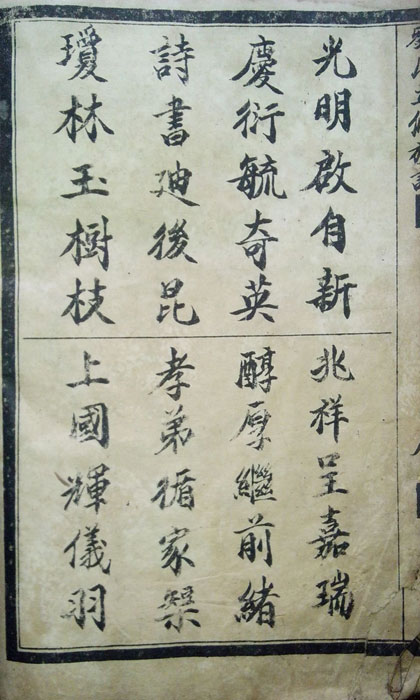 光明啟自新
慶衍毓奇英
詩書迪後昆
瓊林玉樹枝
兆祥呈嘉瑞
醇厚繼前緒
孝弟循家榘
上國輝儀羽